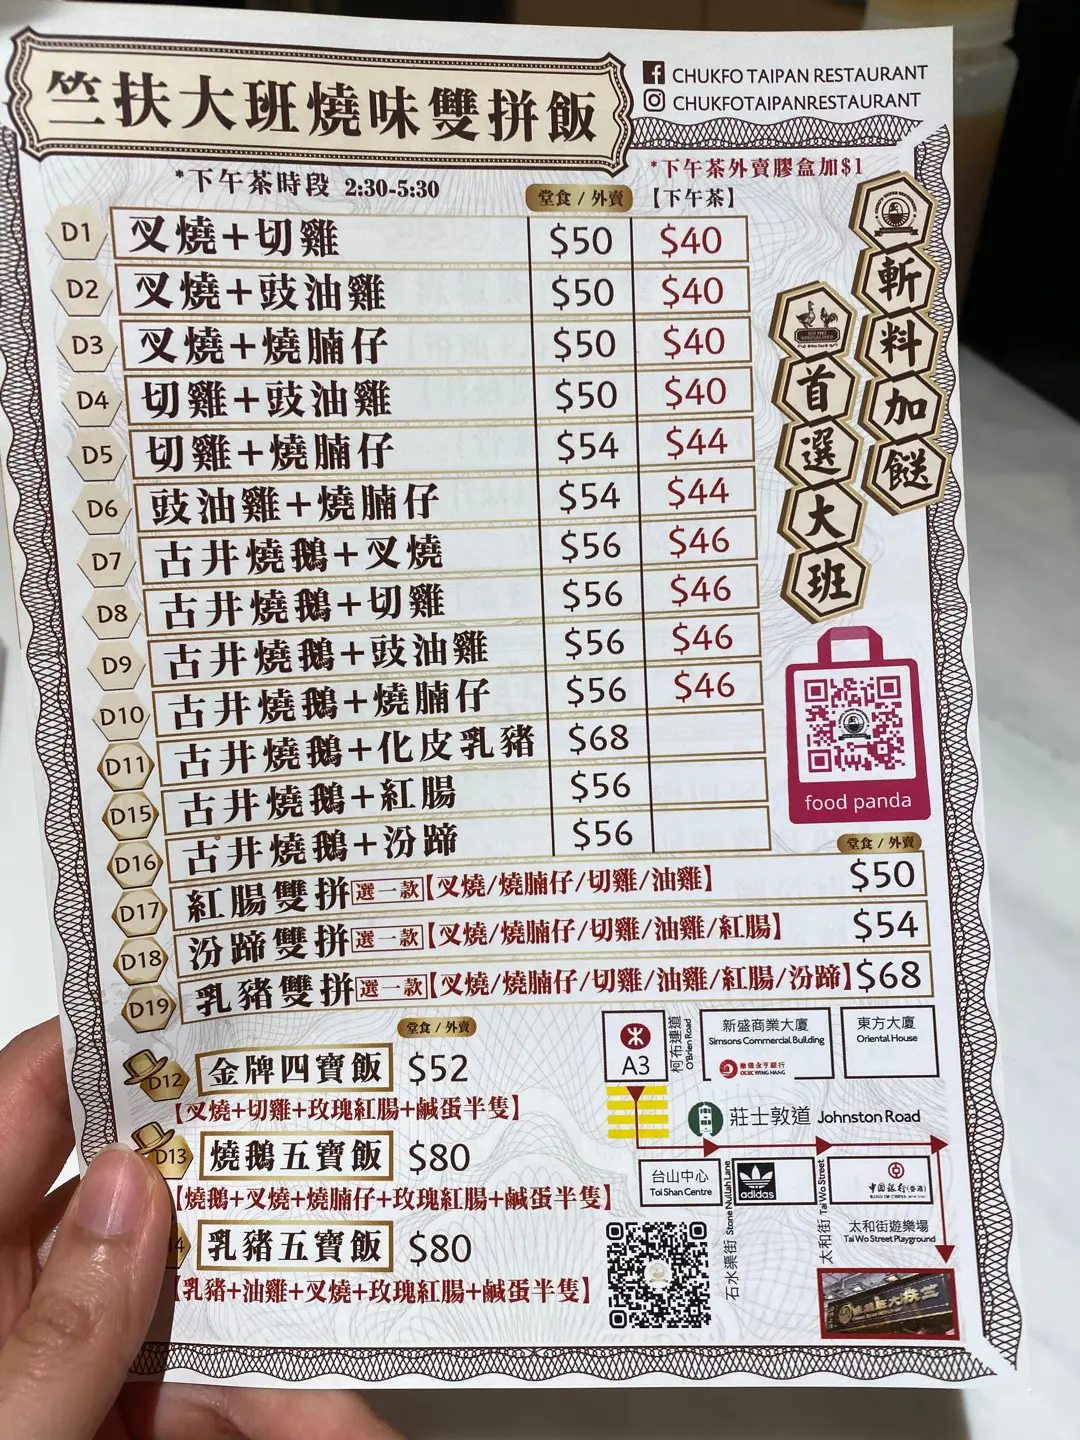 竺扶大班燒味雙拼飯
CHUKFO TAIPAN RESTAURANT
CHUKFOTAIPANRESTAURANT
*下午茶時段 2:30-5:30
*下午茶外賣膠盒加$1
堂食 / 外賣 【下午茶】
D1 叉燒+切雞 $50 $40
D2 叉燒+豉油雞 $50 $40
D3 叉燒+燒腩仔 $50 $40
D4 切雞+豉油雞 $50 $40
D5 切雞+燒腩仔 $54 $44
D6 豉油雞+燒腩仔 $54 $44
D7 古井燒鵝+叉燒 $56 $46
D8 古井燒鵝+切雞 $56 $46
D9 古井燒鵝+豉油雞 $56 $46
D10 古井燒鵝+燒腩仔 $56 $46
D11 古井燒鵝+化皮乳豬 $68
D15 古井燒鵝+紅腸 $56
D16 古井燒鵝+汾蹄 $56
堂食 / 外賣
D17 紅腸雙拼 選一款【叉燒/燒腩仔/切雞/油雞】 $50
D18 汾蹄雙拼 選一款【叉燒/燒腩仔/切雞/油雞/紅腸】 $54
D19 乳豬雙拼 選一款【叉燒/燒腩仔/切雞/油雞/紅腸/汾蹄】 $68
斬料加餸
首選大班
food panda
堂食 / 外賣
D12 金牌四寶飯 $52
【叉燒+切雞+玫瑰紅腸+鹹蛋半隻】
D13 燒鵝五寶飯 $80
【燒鵝+叉燒+燒腩仔+玫瑰紅腸+鹹蛋半隻】
乳豬五寶飯 $80
【乳豬+油雞+叉燒+玫瑰紅腸+鹹蛋半隻】
A3
柯布連道
O'Brien Road
新盛商業大廈
Simsons Commercial Building
華僑永亨銀行
OCBC WING HANG
東方大廈
Oriental House
莊士敦道 Johnston Road
台山中心
Toi Shan Centre
石水渠街 Stone Nullah Lane
adidas
太和街 Tai Wo Street
中國銀行(香港)
BANK OF CHINA
太和街遊樂場
Tai Wo Street Playground